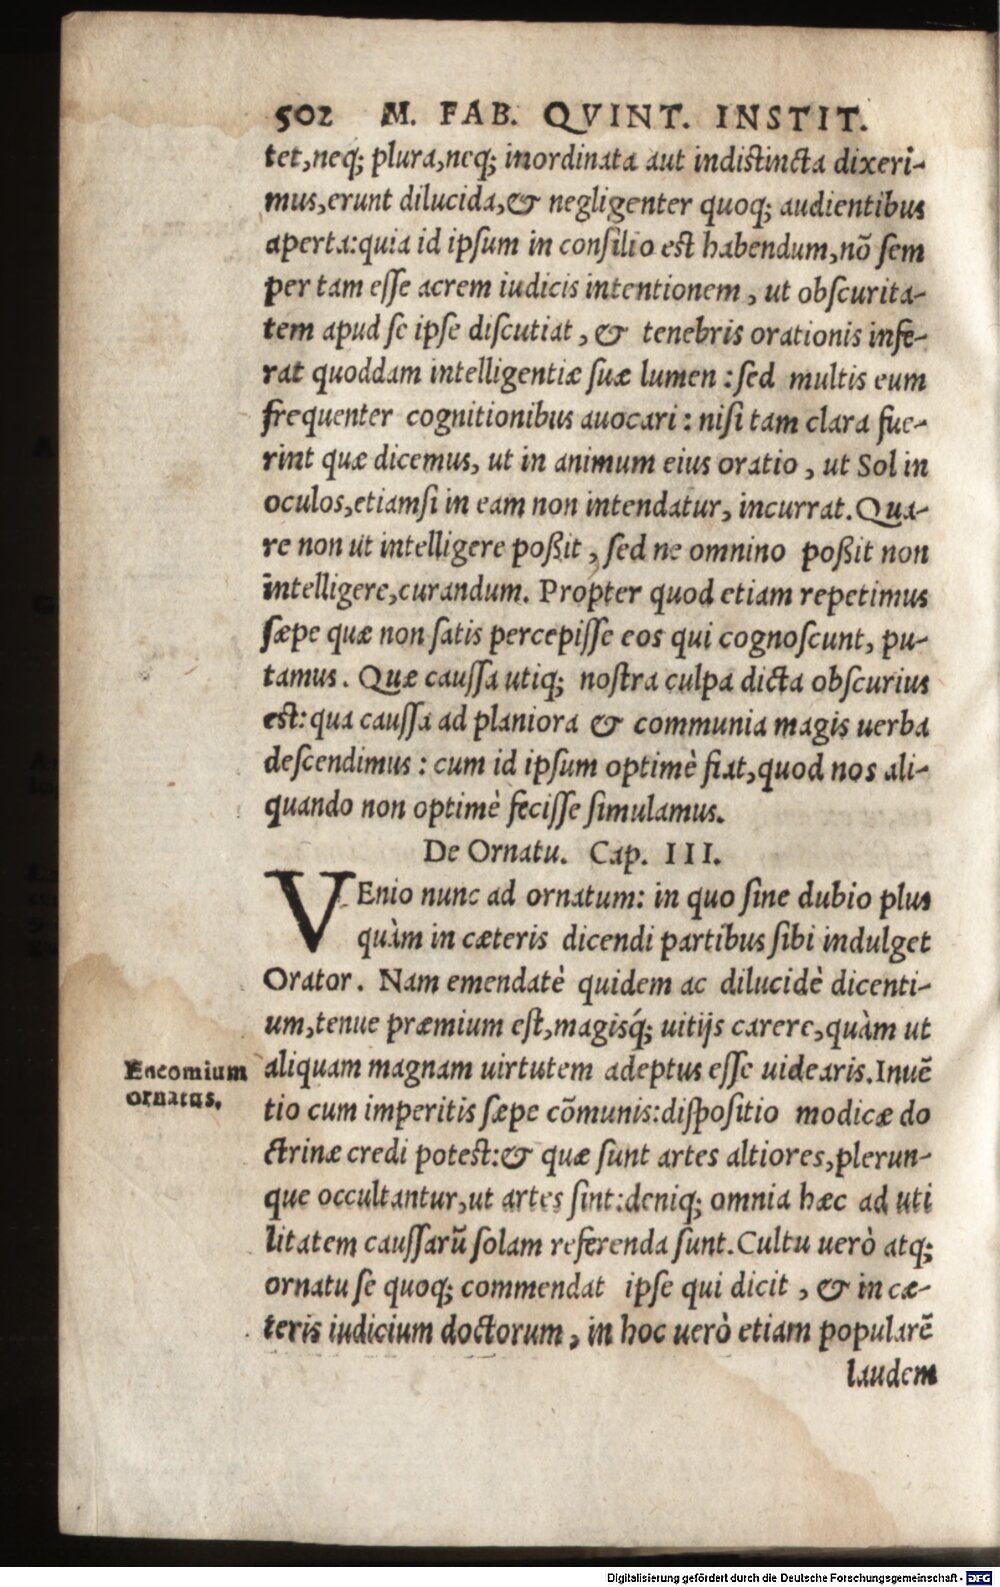 502 M. FAB. QVINT. INSTIT.
tet,neq; plura,neq; inordinata aut indistincta dixeri-
mus,erunt dilucida,& negligenter quoq; audientibus
aperta:quia id ipſum in conſilio est habendum,nō ſem
per tam eſſe acrem iudicis intentionem , ut obſcurita-
tem apud ſe ipſe diſcutiat , & tenebris orationis infe-
rat quoddam intelligentiæ ſuæ lumen : ſed multis eum
frequenter cognitionibus auocari : niſi tam clara fue-
rint quæ dicemus, ut in animum eius oratio , ut Sol in
oculos,etiamſi in eam non intendatur, incurrat. Qua-
re non ut intelligere poßit , ſed ne omnino poßit non
intelligere,curandum. Propter quod etiam repetimus
ſæpe quæ non ſatis percepiſſe eos qui cognoſcunt, pu-
tamus. Quæ cauſſa utiq; noſtra culpa dicta obſcurius
est: qua cauſſa ad planiora & communia magis uerba
deſcendimus : cum id ipſum optimè fiat,quod nos ali-
quando non optimè feciſſe ſimulamus.
De Ornatu. Cap. III.
VEnio nunc ad ornatum: in quo ſine dubio plus
quàm in cæteris dicendi partibus ſibi indulget
Orator. Nam emendatè quidem ac dilucidè dicenti-
um,tenue præmium eſt,magisq́; uitijs carere,quàm ut
Encomium ornatus.
aliquam magnam uirtutem adeptus eſſe uidearis. Inuē
tio cum imperitis ſæpe cōmunis:diſpoſitio modicæ do
ctrinæ credi potest:& quæ ſunt artes altiores,plerun-
que occultantur,ut artes ſint:deniq; omnia hæc ad uti
litatem cauſſarū ſolam referenda ſunt. Cultu uerò atq;
ornatu ſe quoq; commendat ipſe qui dicit , & in cæ-
teris iudicium doctorum , in hoc uerò etiam popularē
laudem
Digitalisierung gefördert durch die Deutsche Forschungsgemeinschaft - DFG